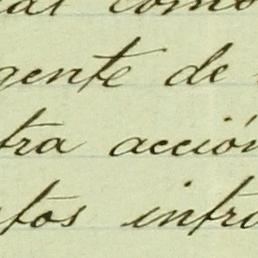 como
gente de
tra acción
tos intro